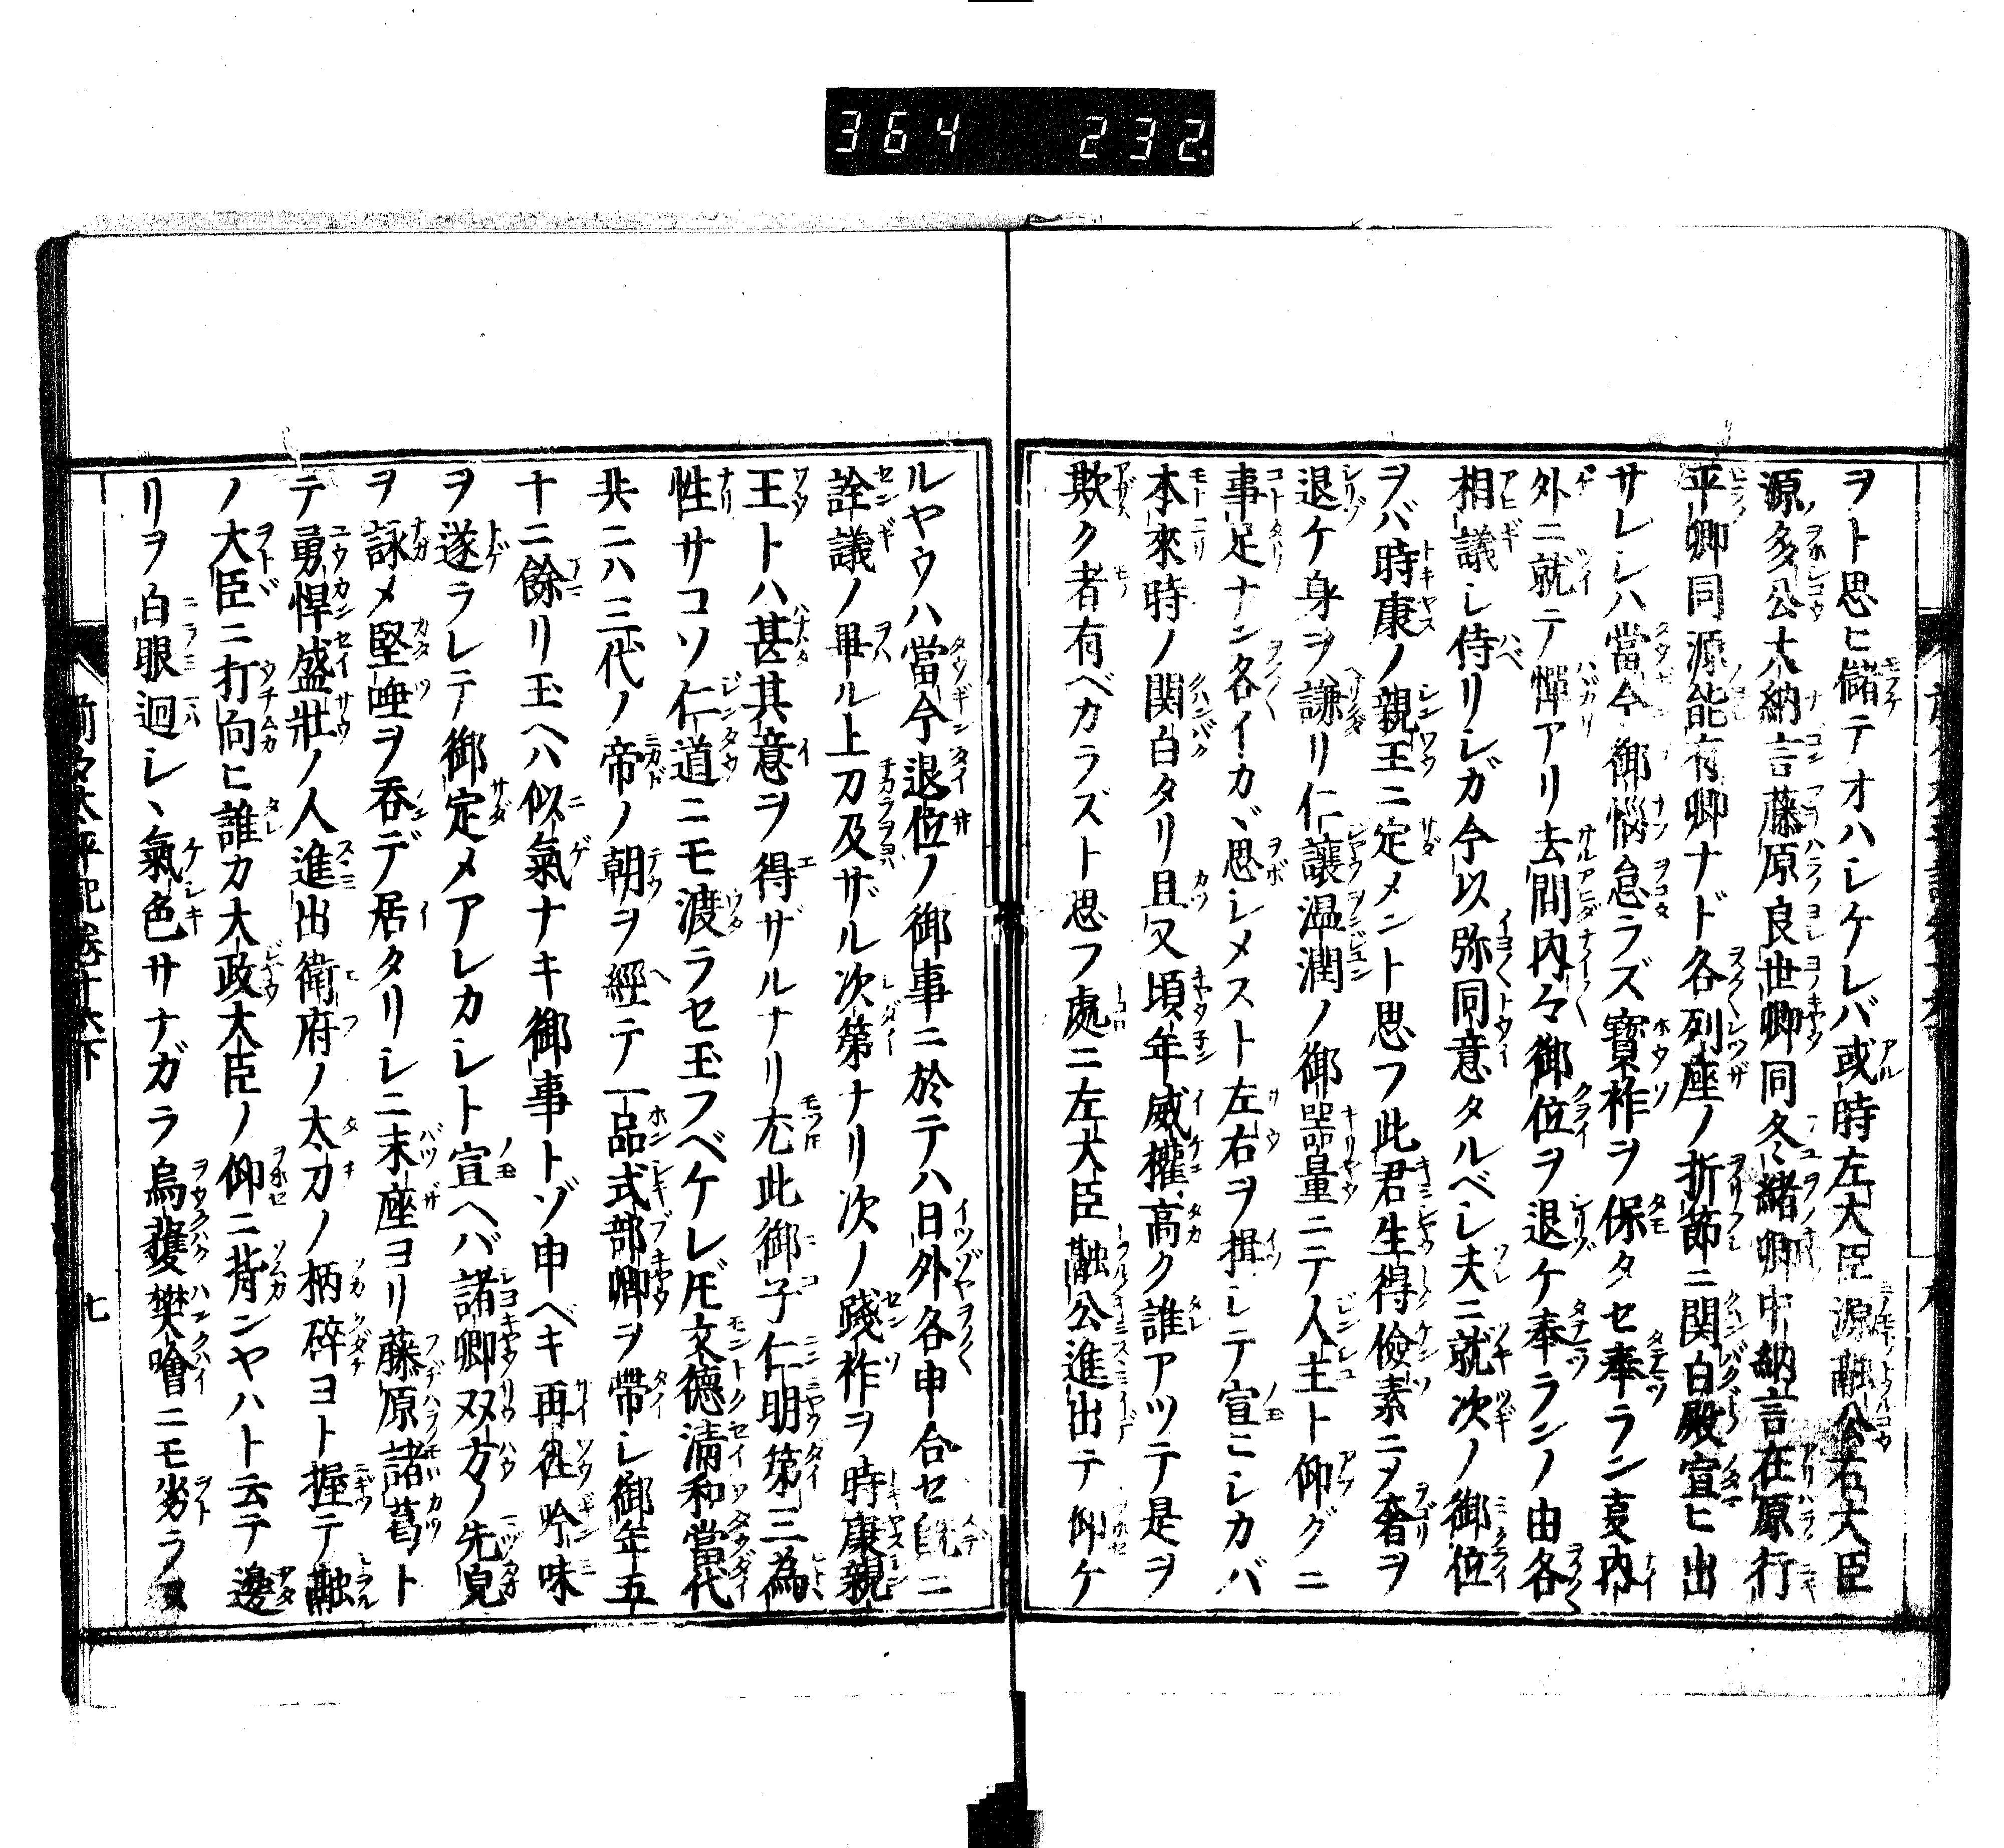 364 232.
ヲト思ヒ儲テオハシケレバ或時左大臣源融公右大臣
源多公大納言藤原良世卿同冬緒卿中納言在原行
平卿同源能有卿ナド各列座ノ折節ニ関白殿宣ヒ出
サレシハ當今御悩怠ラズ寳祚ヲ保タセ奉ラン事内
外ニ就テ憚アリ去間内々御位ヲ退ケ奉ランノ由各
相議シ侍リシガ今以弥同意タルベシ夫ニ就次ノ御位
ヲバ時康ノ親王ニ定メント思フ此君生得儉素ニメ奢ヲ
退ケ身ヲ謙リ仁讓温潤ノ御器量ニテ人主ト仰グニ
事足ナン各イカヾ思シメスト左右ヲ揖シテ宣ヒシカバ
本來時ノ関白タリ且又頃年威權高ク誰アツテ是ヲ
欺ク者有ベカラズト思フ處ニ左大臣融公進出テ仰ケ
ルヤウハ當今退位ノ御事ニ於テハ日外各申合セ既ニ
詮議ノ畢ル上刀及ザル次第ナリ次ノ踐祚ヲ時康親
王トハ甚其意ヲ得ザルナリ尤此御子仁明第三為
性サコソ仁道ニモ渡ラセ玉フベケレ𪜈文德清和當代
共ニハ三代ノ帝ノ朝ヲ經テ一品式部卿ヲ帶シ御年五
十ニ餘リ玉ヘハ似氣ナキ御事トゾ申ヘキ再往吟味
ヲ遂ラレテ御定メアレカシト宣ヘバ諸卿双方ノ先見
ヲ詠メ堅唾ヲ呑デ居タリシニ末座ヨリ藤原諸葛ト
テ勇悍盛壯ノ人進出衛府ノ太刀ノ柄碎ヨト握テ融
ノ大臣ニ打向ヒ誰カ大政大臣ノ仰ニ背ンヤハト云テ邊
リヲ白眼迴シヽ氣色サナガラ烏獲樊噲ニモ劣ラヌ
前々太平記卷十六下
七